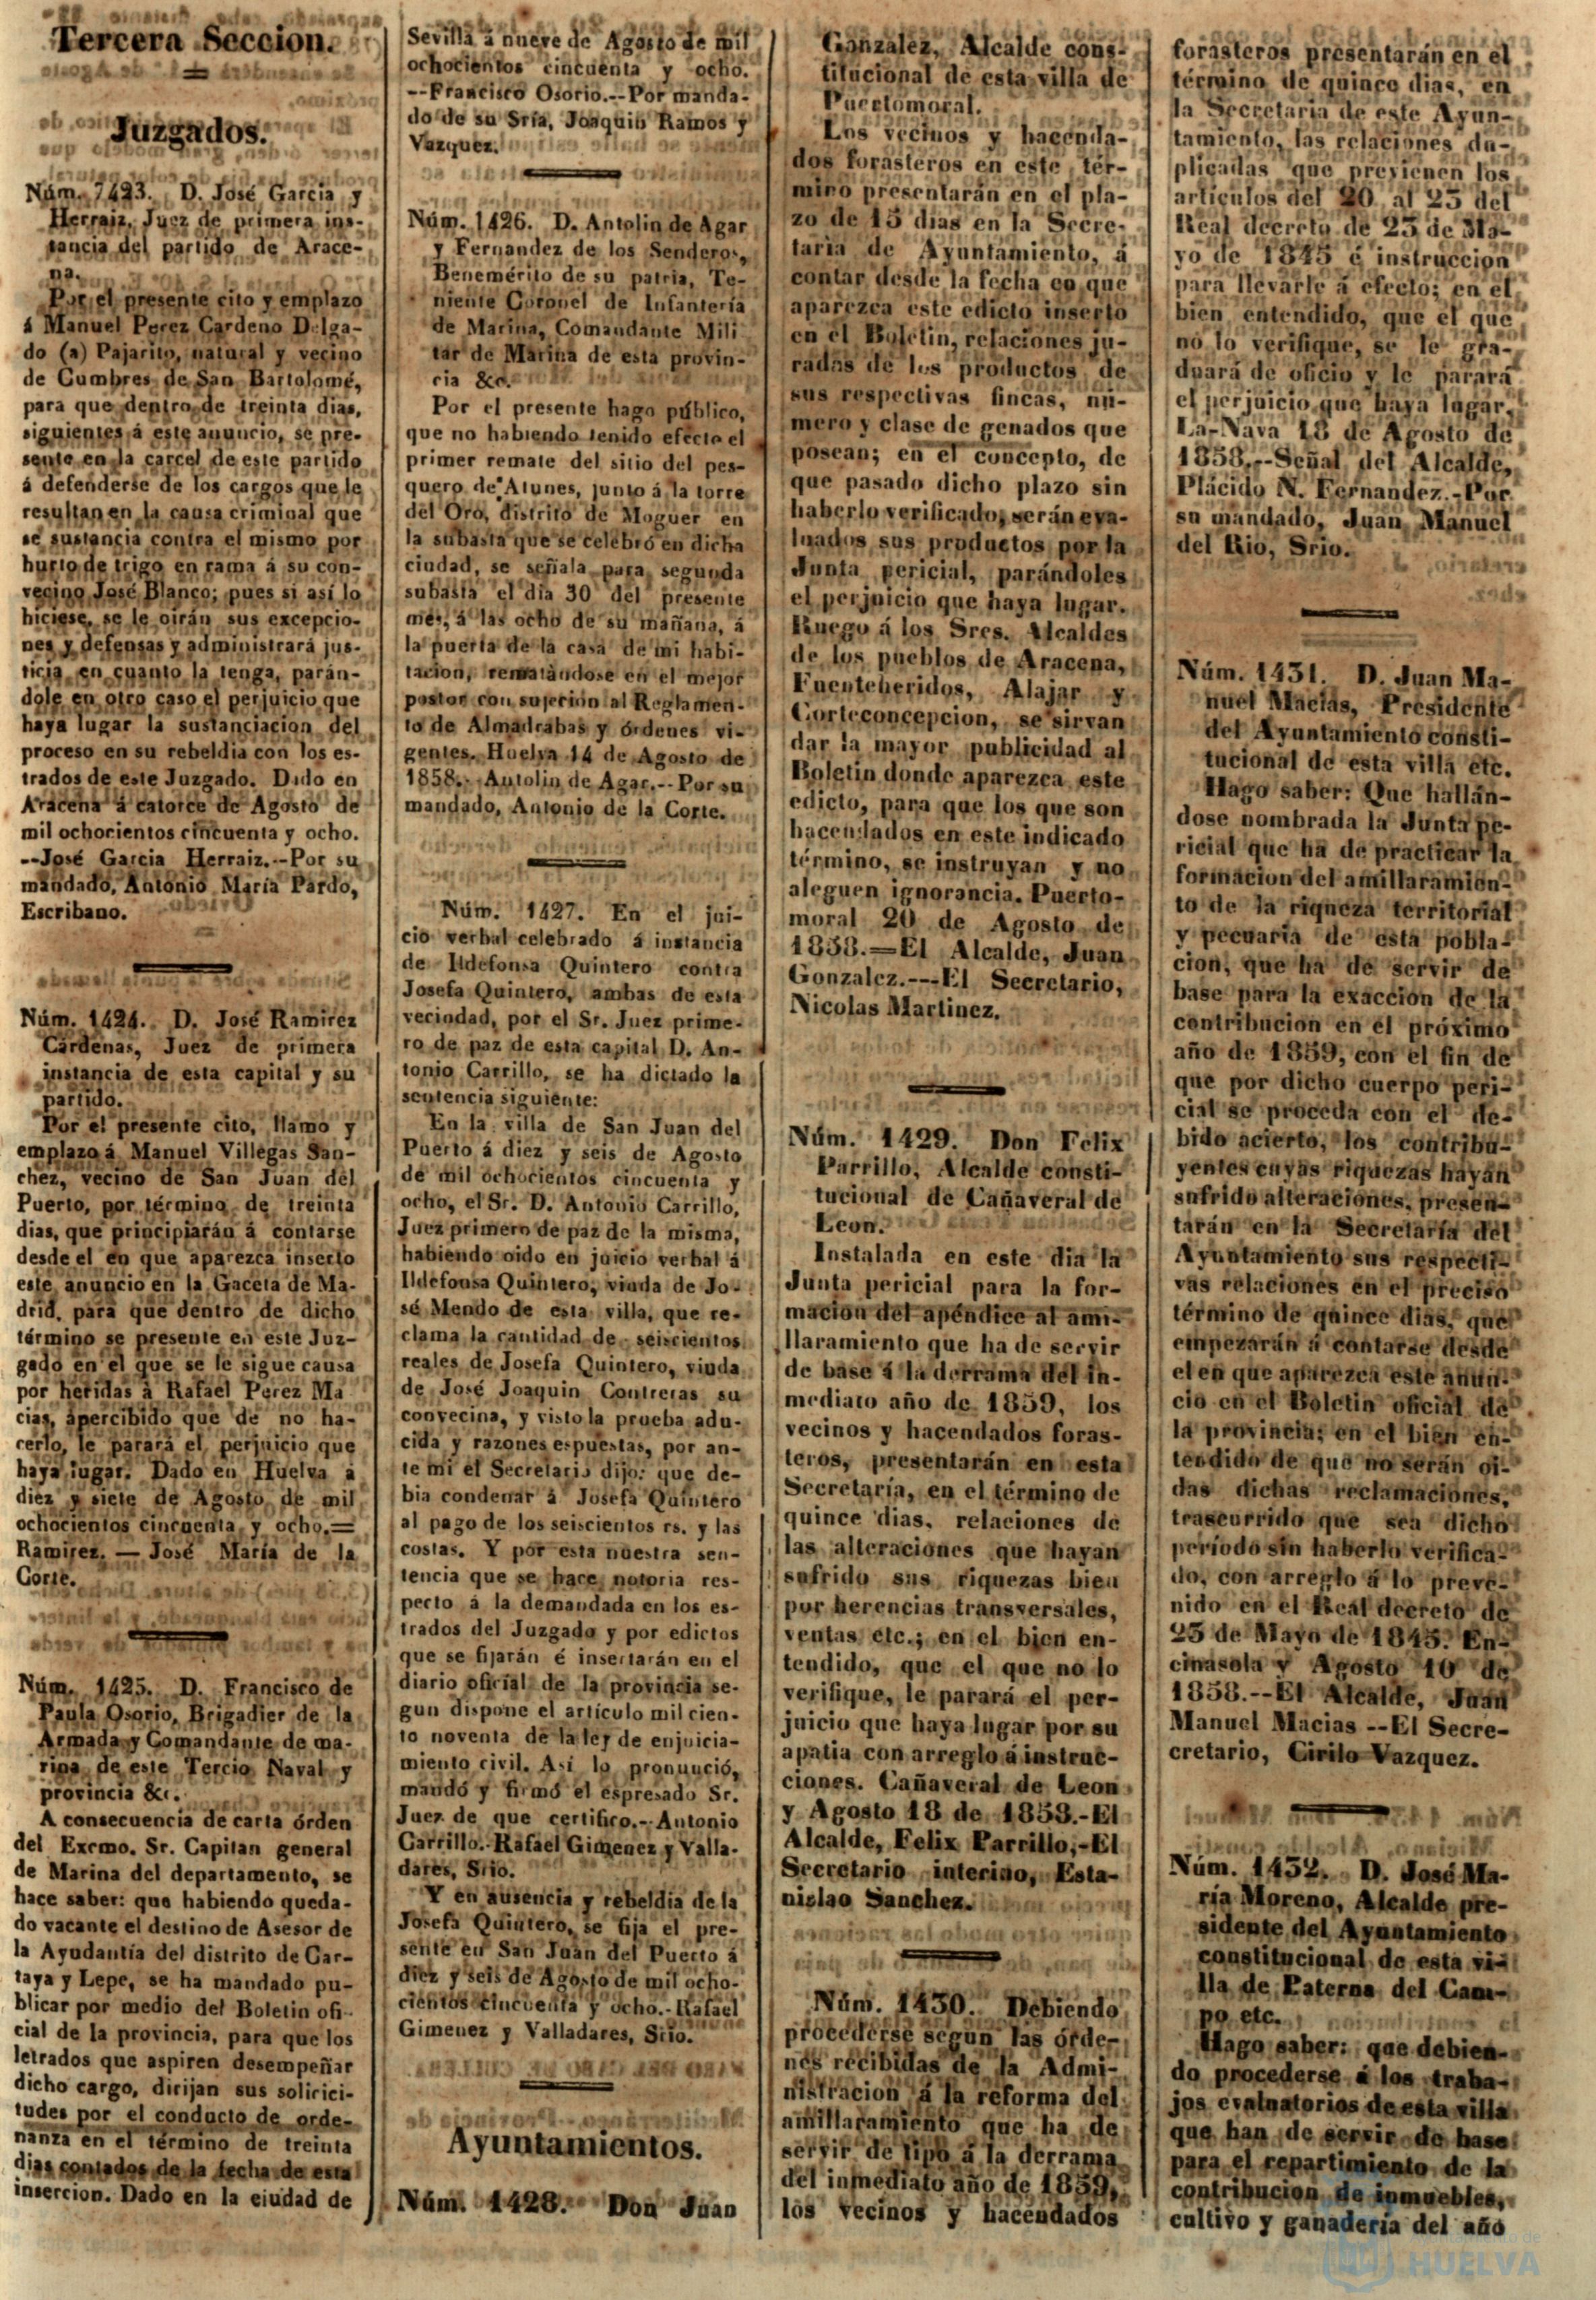 Tercera Seccion.
Juzgados.
Núm. 7423. D. José Garcia y
Herraiz, Juez de primera ins-
tancia del partido de Arace-
na.
Por el presente cito y emplazo
á Manuel Perez Cardeno Delga-
do (a) Pajarito, natural y vecino
de Cumbres de San Bartolomé,
para que dentro de treinta dias,
siguientes á este anuncio, se pre-
sente en la carcel de este partido
á defenderse de los cargos que le
resultan en la causa criminal que
se sustancia contra el mismo por
hurto de trigo en rama á su con-
vecino José Blanco; pues si así lo
hiciese, se le oirán sus excepcio-
nes y defensas y administrará jus-
ticia en cuanto la tenga, parán-
dole en otro caso el perjuicio que
haya lugar la sustanciacion del
proceso en su rebeldia con los es-
trados de este Juzgado. Dado en
Aracena á catorce de Agosto de
mil ochocientos cincuenta y ocho.
--José Garcia Herraiz.--Por su
mandado, Antonio María Pardo,
Escribano.
Núm. 1424. D. José Ramirez
Cárdenas, Juez de primera
instancia de esta capital y su
partido.
Por el presente cito, llamo y
emplazo á Manuel Villegas San-
chez, vecino de San Juan del
Puerto, por término de treinta
dias, que principiarán á contarse
desde el en que aparezca inserto
este anuncio en la Gaceta de Ma-
drid, para que dentro de dicho
término se presente en este Juz-
gado en el que se le sigue causa
por heridas á Rafael Perez Ma
cias, apercibido que de no ha-
cerlo, le parará el perjuicio que
haya lugar. Dado en Huelva á
diez y siete de Agosto de mil
ochocientos cincuenta y ocho.=
Ramirez. — José María de la
Corte.
Núm. 1425. D. Francisco de
Paula Osorio, Brigadier de la
Armada y Comandante de ma-
rina de este Tercio Naval y
provincia &c.
A consecuencia de carta órden
del Excmo. Sr. Capitan general
de Marina del departamento, se
hace saber: que habiendo queda-
do vacante el destino de Asesor de
la Ayudantía del distrito de Car-
taya y Lepe, se ha mandado pu-
blicar por medio del Boletin ofi-
cial de la provincia, para que los
letrados que aspiren desempeñar
dicho cargo, dirijan sus solicici-
tudes por el conducto de orde-
nanza en el término de treinta
dias contados de la fecha de esta
insercion. Dado en la ciudad de
Sevilla á nueve de Agosto de mil
ochocientos cincuenta y ocho.
--Francisco Osorio.--Por manda-
do de su Sría, Joaquin Ramos y
Vazquez.
Núm. 1426. D. Antolin de Agar
y Fernandez de los Senderos,
Benemérito de su patria, Te-
niente Coronel de Infantería
de Marina, Comandante Mili
tar de Marina de esta provin-
cia &c.
Por el presente hago público,
que no habiendo tenido efecto el
primer remate del sitio del pes-
quero de Atunes, junto á la torre
del Oro, distrito de Moguer en
la subasta que se celebró en dicha
ciudad, se señala para segunda
subasta el dia 30 del presente
mes, á las ocho de su mañana, á
la puerta de la casa de mi habi-
tacion, rematándose en el mejor
postor con sujecion al Reglamen-
to de Almadrabas y órdenes vi-
gentes. Huelva 14 de Agosto de
1858.--Antolin de Agar.--Por su
mandado, Antonio de la Corte.
Núm. 1427. En el jui-
cio verbal celebrado á instancia
de Ildefonsa Quintero contra
Josefa Quintero, ambas de esta
vecindad, por el Sr. Juez prime-
ro de paz de esta capital D. An-
tonio Carrillo, se ha dictado la
sentencia siguiente:
En la villa de San Juan del
Puerto á diez y seis de Agosto
de mil ochocientos cincuenta y
ocho, el Sr. D. Antonio Carrillo,
Juez primero de paz de la misma,
habiendo oido en juicio verbal á
Ildefonsa Quintero, viuda de Jo-
sé Mendo de esta villa, que re-
clama la cantidad de seiscientos
reales de Josefa Quintero, viuda
de José Joaquin Contreras su
convecina, y visto la prueba adu-
cida y razones espuestas, por an-
te mi el Secretario dijo: que de-
bia condenar á Josefa Quintero
al pago de los seiscientos rs. y las
costas. Y por esta nuestra sen-
tencia que se hace notoria res-
pecto á la demandada en los es-
trados del Juzgado y por edictos
que se fijarán é insertarán en el
diario oficial de la provincia se-
gun dispone el artículo mil cien-
to noventa de la ley de enjuicia-
miento civil. Así lo pronunció,
mandó y firmó el espresado Sr.
Juez de que certifico.--Antonio
Carrillo.-Rafael Gimenez y Valla-
dares, Srio.
Y en ausencia y rebeldia de la
Josefa Quintero, se fija el pre-
sente en San Juan del Puerto á
diez y seis de Agosto de mil ocho-
cientos cincuenta y ocho.-Rafael
Gimenez y Valladares, Srio.
Ayuntamientos.
Núm. 1428. Don Juan
Gonzalez, Alcalde cons-
titucional de esta villa de
Puertomoral.
Los vecinos y hacenda-
dos forasteros en este tér-
mino presentarán en el pla-
zo de 15 dias en la Secre-
taria de Ayuntamiento, á
contar desde la fecha en que
aparezca este edicto inserto
en el Boletin, relaciones ju-
radas de los productos de
sus respectivas fincas, nú-
mero y clase de genados que
posean; en el concepto, de
que pasado dicho plazo sin
haberlo verificado, serán eva-
luados sus productos por la
Junta pericial, parándoles
el perjuicio que haya lugar.
Ruego á los Sres. Alcaldes
de los pueblos de Aracena,
Fuenteheridos, Alajar y
Corteconcepcion, se sirvan
dar la mayor publicidad al
Boletin donde aparezca este
edicto, para que los que son
hacendados en este indicado
término, se instruyan y no
aleguen ignorancia. Puerto-
moral 20 de Agosto de
1858.=El Alcalde, Juan
Gonzalez.---El Secretario,
Nicolas Martinez.
Núm. 1429. Don Felix
Parrillo, Alcalde consti-
tucional de Cañaveral de
Leon.
Instalada en este dia la
Junta pericial para la for-
macion del apéndice al ami-
llaramiento que ha de servir
de base á la derrama del in-
mediato año de 1859, los
vecinos y hacendados foras-
teros, presentarán en esta
Secretaría, en el término de
quince dias, relaciones de
las alteraciones que hayan
sufrido sus riquezas bien
por herencias transversales,
ventas etc.; en el bien en-
tendido, que el que no lo
verifique, le parará el per-
juicio que haya lugar por su
apatia con arreglo á instruc-
ciones. Cañaveral de Leon
y Agosto 18 de 1858.-El
Alcalde, Felix Parrillo,-El
Secretario interino, Esta-
nislao Sanchez.
Núm. 1430. Debiendo
procederse segun las órde-
nes recibidas de la Admi-
nistracion á la reforma del
amillaramiento que ha de
servir de tipo á la derrama
del inmediato año de 1859,
los vecinos y hacendados
forasteros presentarán en el
término de quince dias, en
la Secretaria de este Ayun-
tamiento, las relaciones du-
plicadas que previenen los
artículos del 20 al 25 del
Real decreto de 23 de Ma-
yo de 1845 é instruccion
para llevarle á efecto; en el
bien entendido, que el que
no lo verifique, se le gra-
duará de oficio y le parará
el perjuicio que haya lugar.
La-Nava 18 de Agosto de
1858.--Señal del Alcalde,
Plácido N. Fernandez.-Por
su mandado, Juan Manuel
del Rio, Srio.
Núm. 1431. D. Juan Ma-
nuel Macias, Presidente
del Ayuntamiento consti-
tucional de esta villa etc.
Hago saber: Que hallán-
dose nombrada la Junta pe-
ricial que ha de practicar la
formacion del amillaramien-
to de la riqueza territorial
y pecuaria de esta pobla-
cion, que ha de servir de
base para la exaccion de la
contribucion en el próximo
año de 1859, con el fin de
que por dicho cuerpo peri-
cial se proceda con el de-
bido acierto, los contribu-
yentes cuyas riquezas hayan
sufrido alteraciones, presen-
tarán en la Secretaría del
Ayuntamiento sus respecti-
vas relaciones en el preciso
término de quince dias, que
empezarán á contarse desde
el en que aparezca este anun-
cio en el Boletin oficial de
la provincia; en el bien en-
tendido de que no serán oi-
das dichas reclamaciones,
trascurrido que sea dicho
período sin haberlo verifica-
do, con arreglo á lo preve-
nido en el Real decreto de
23 de Mayo de 1845. En-
cinasola y Agosto 10 de
1858.--El Alcalde, Juan
Manuel Macias --El Secre-
cretario, Cirilo Vazquez.
Núm. 1432. D. José Ma-
ría Moreno, Alcalde pre-
sidente del Ayuntamiento
constitucional de esta vi-
lla de Paterna del Cam-
po etc.
Hago saber: que debien-
do procederse á los traba-
jos evaluatorios de esta villa
que han de servir de base
para el repartimiento de la
contribucion de inmuebles,
cultivo y ganadería del año
HUELVA